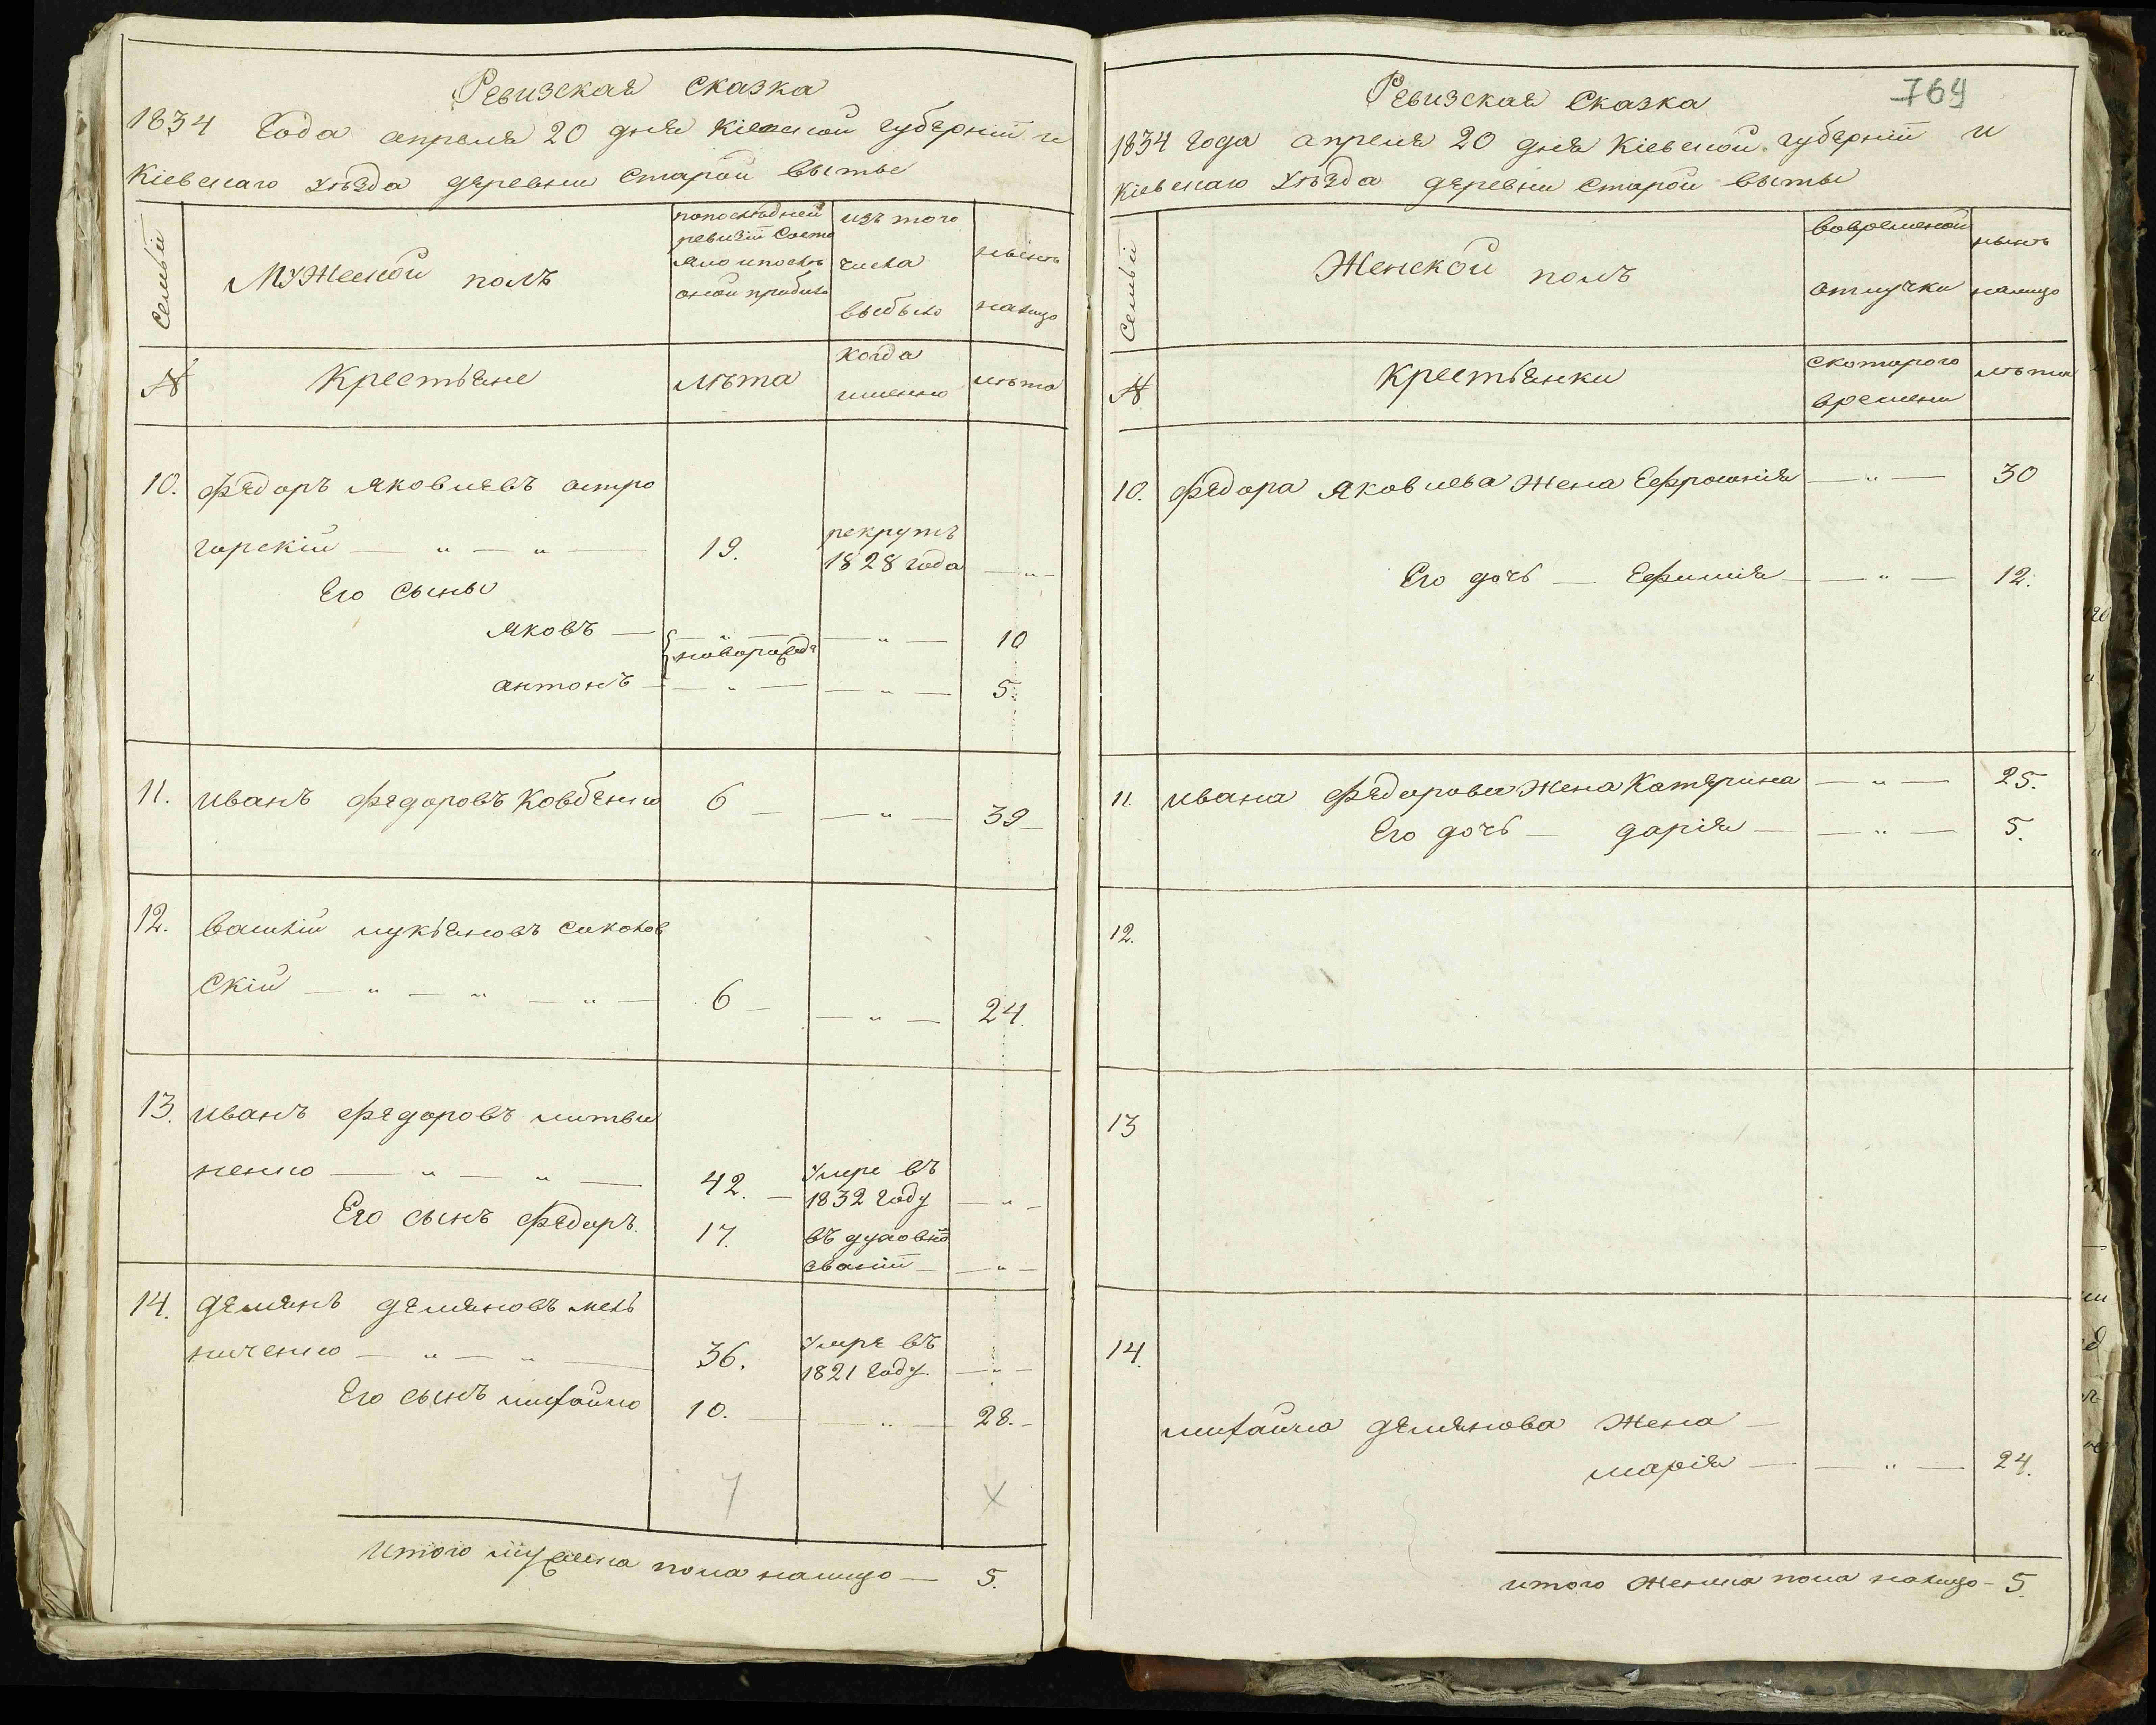 Ревизская сказка
1834 Года апреля 20 дня Кіевской губерніи и
Кіевскаго уѣзда деревни Старой Вытье
Семьи
Мужеской полъ
попослѣдней
ревизіи состо
яло ипослѣ
оной прибыло
изъ того
числа
выбыло
нынѣ
налицо
№
Крестьяне
лѣта
когда
именно
лѣта
10. Федоръ Яковлевъ астро
горскій — " — " — 19. рекрутъ
1828 года — " —
Его сыны
Яковъ — — " — — " — 10
новорожде
антонъ — — " — — " — 5.
11. Иванъ Федоровъ Ковбенко 6 — — " — 39 —
12. Василій лукьяновъ Соколов
скій — " — " — " — 6 — — " — 24.
13. Иванъ Федоровъ литви
ненко — " — " — 42. — умре въ
1832 году — " —
Его сынъ Федоръ. 17. въ духовно
званіи — — " —
14. Демянъ Демяновъ мель
ниченко — " — " — 36. умре въ
1821 году. — " —
Его сынъ михайло 10. — — " — 28. —
7 X
Итого мужеска пола налицо — 5.
769
Ревизская Сказка
1834 года апреля 20 дня Кіевской губерніи и
Кіевскаго уѣзда деревни Старой Вытье
Семьи
Женской полъ
вовременной
отлучки
нынѣ
налицо
№
Крестьянки
скоторого
времени
лѣта
10. Федора Яковлева Жена Ефросинія — " — 30
Его дочь — Ефимія — — " — 12.
11. Ивана Федорова Жена Катерина — " — 25.
Его дочь — дарія — — " — 5.
12.
13
14.
михайла Демянова Жена —
марія — — " — 24.
итого Женска пола налицо — 5.